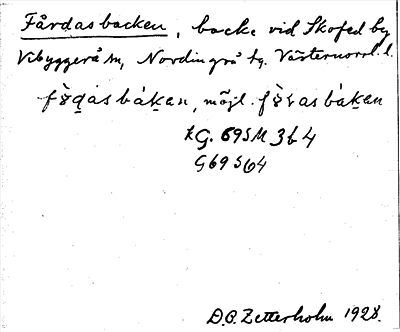 Fårdasbacken, backe vid Skofed by
Vibyggerå sn, Nordingrå tg. Västernorrl. l.
báken, möjl.
G. 69 S M 364
G 69 S 64
D.O. Zetterholm 1928.